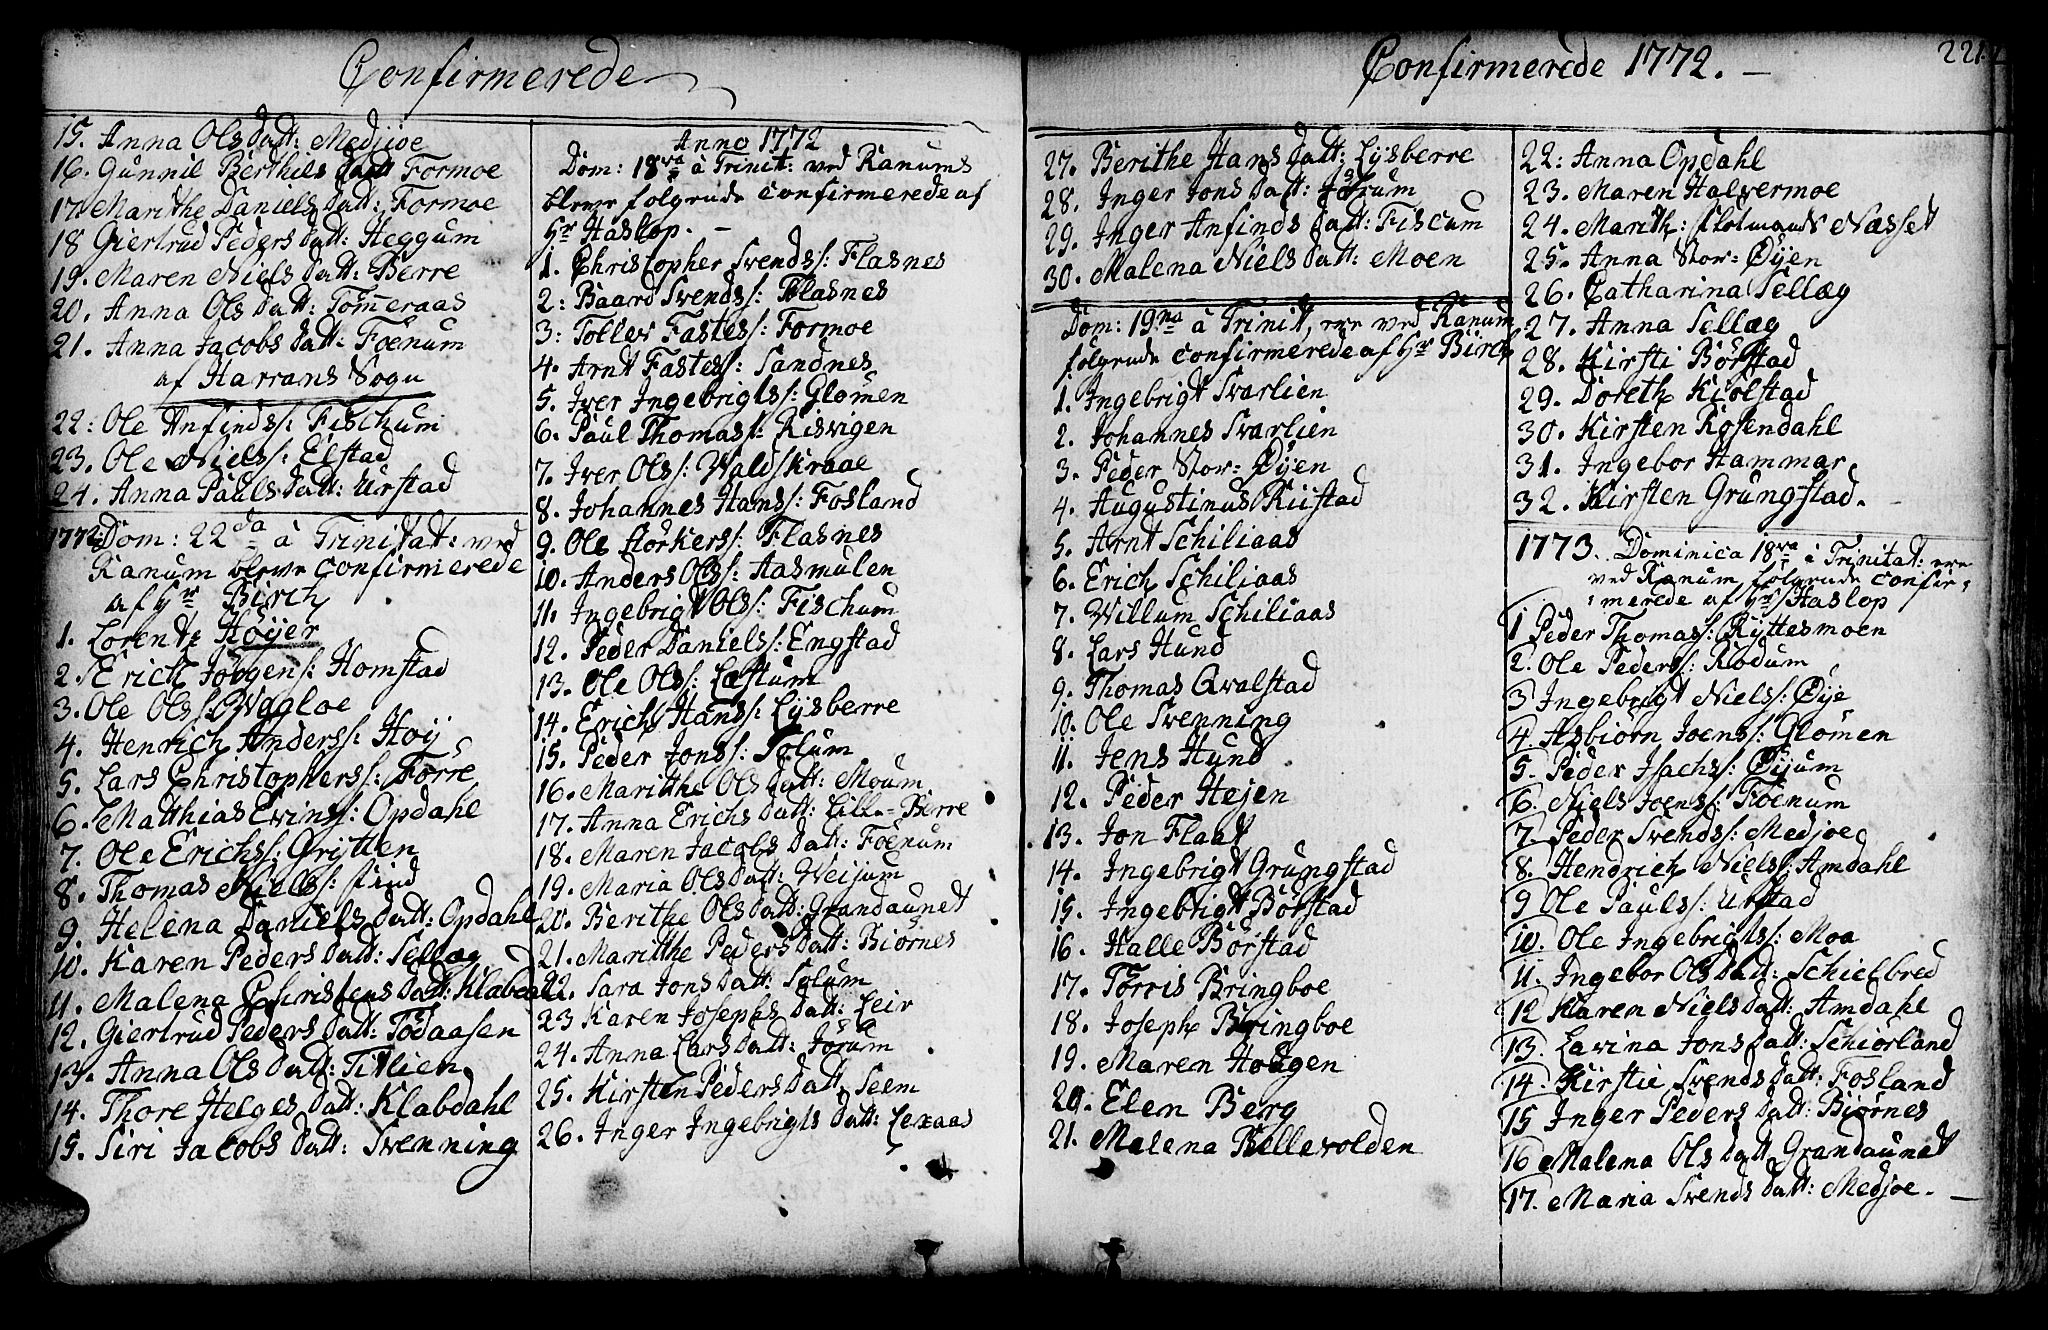 Confirmerede
15. Anna Olsdatt: Medjøe
16. Gunnil Berthilsdatt Formoe
17 Marithe Danielsdatt: Formoe
18 Giertrud Pedersdatt: Heggum
19. Maren Nielsdatt: Berre
20. Anna Olsdatt: Tømeraas
21. Anna Jacobsdatt: Foenum
af Harrans Sogn
22: Ole Anfinds/: Fischum
23. Ole Niels/: Elstad
24. Anna Paulsdatt: Urstad
1772 Dom: 22da à Trinitat: ved
Ranum bleve confirmerede
af Hr Birch
1. Lorentz Høyer
2. Erich Jørgens/: Homstad
3. Ole Ols/: Wagløe
4. Henrich Anders/: Høy
5. Lars Christophers/: Førre
6. Matthias Evins/: Opdahl
7. Ole Erichs/: Grytten
8. Thomas Niels/: Lind
9. Helena Danielsdatt: Opdahl
10. Karen Pedersdatt: Sellæg
11. Malena Christensdatt: Klabdahl
12. Giertrud Pedersdatt: Tødaasen
13. Anna Olsdatt: Titlien
14. Thore Helgesdatt: Klabdahl
15. Siri Jacobsdatt: Svenning
Anno 1772
Dom: 18va à Trinit: ved Ranums
bleve følgende confirmerede af
Hr Haslop. -
1. Christopher Svends/: Flasnes
2: Baard Svends/: Flasnes
3: Tollev Fastes/: Formoe
4. Arnt Fastes/: Sandnes
5. Iver Ingebrigts/: Glømen
6. Paul Thomas/: Risvigen
7. Iver Ols/: Waldskraae
8. Johannes Hans/: Fosland
9. Ole Størkers/: Flasnes
10. Anders Ols/: Aasmulen
11. Ingebrigt Ols/: Fischum
12. Peder Daniels/: Engstad
13. Ole Ols/: Læstum
14. Erich Hans/: Lysberre
15. Peder Jons/: Solum
16. Marithe Olsdatt: Moum
17. Anna Erichsdatt: Lille-Berre
18. Maren Jacobsdatt: Foenum
19. Maria Olsdatt: Weijum
20. Berithe Olsdatt: Grandaunet
21. Marithe Pedersdatt: Biørnes
22. Sara Jonsdatt: Solum
23 Karen Josephsdatt: Leir
24. Anna Larsdatt: Jørum
25. Kirsten Pedersdatt, Seem
26. Inger Ingebrigtsdatt: Lexaas
Confirmerede 1772. -
221.
27. Berithe Hansdatt: Lysberre
28. Inger Jonsdatt: Jørum
29. Inger Anfindsdatt: Fiscum
30. Malena Nielsdatt: Moen
Dom: 19na à Trinit, ere ved Ranum
følgende confirmerede af Hr Birch
1. Ingebrigt Svarlien
2. Johannes Svarlien
3. Peder Stor=Øyen
4. Augustinus Riistad
5. Arnt Schiliaas
6. Erich Schiliaas
7. Willum Schiliaas
8. Lars Hund
9. Thomas Qvalstad
10. Ole Svenning
11. Jens Hund
12. Peder Hejen
13. Jon Flaat
14. Ingebrigt Grungstad
15. Ingebrigt Børstad
16. Halle Børstad
17. Torris Bringboe
18. Joseph Bringboe
19. Maren Hougen
20. Elen Berg
21. Malena Bellevolden
22: Anna Opdahl
23. Maren Halvermoe
24. Marith: Flotmands Næsset
25. Anna Stor=Øyen
26. Catharina Sellæg
27. Anna Sellæg
28. Kirsti Børstad
29. Doreth Kiølstad
30. Kirsten Rosendahl
31. Ingebor Hammar
32. Kirsten Grungstad.
1773. Dominica 18va à Trinitat: ere
ved Ranum følgende confir=
=merede af Hr Haslop
1 Peder Thomas/: Ryttesmoen
2. Ole Peders/: Rødum
3 Ingebrigt Niels/: Øye
4. Asbiørn Joens/: Glømen
5. Peder Isachs/: Øyum
6. Niels Joens/: Foenum
7. Peder Svends/: Medjøe
8. Hendrich Niels/: Amdahl
9 Ole Pauls/: Urstad
10. Ole Ingebrigts/: Moa
11. Ingebor Olsdatt: Schielbred
12 Karen Nielsdatt: Amdahl
13. Lavina Jonsdatt: Schiørland
14. Kirstie Svendsdatt: Fosland
15 Inger Pedersdatt: Biørnes
16 Malena Olsdatt Grandaunet
17. Maria Svendsdatt: Medjøe. -